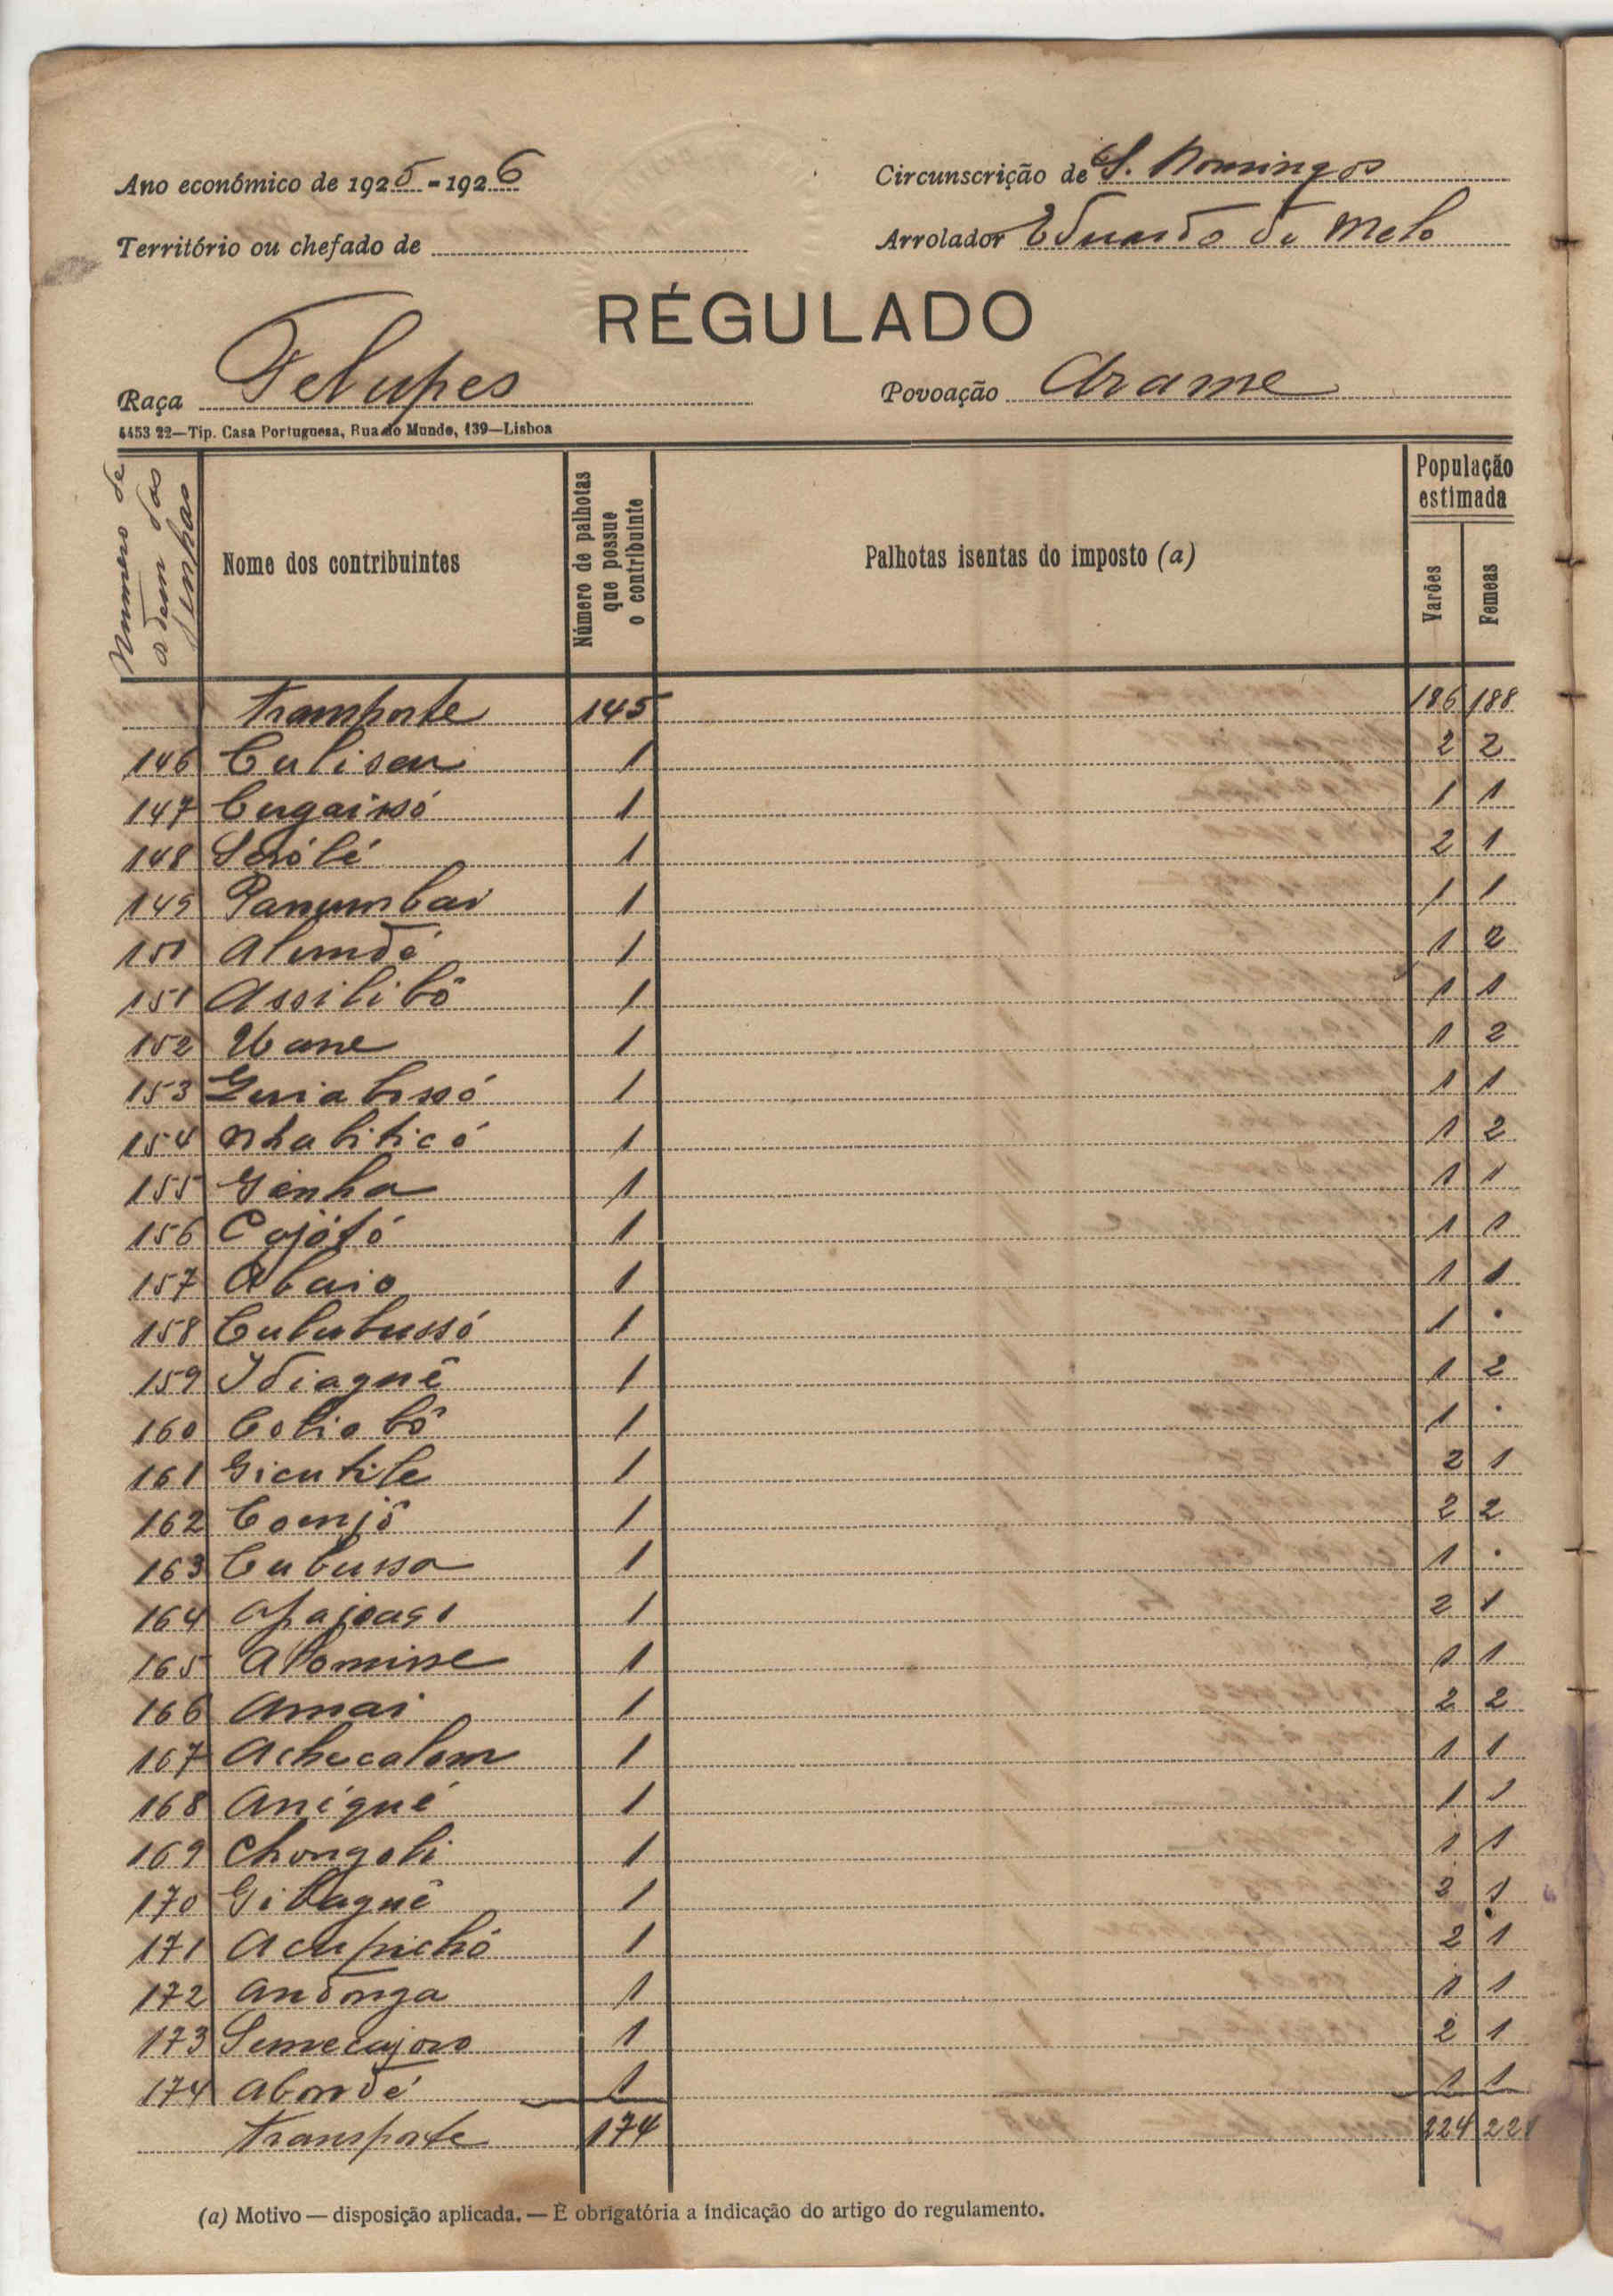 Ano económico de 1925-1926
Circunscrição de S. Domingos
Território ou chefado de
Arrolador Eduardo de Melo
RÉGULADO
Raça Felupes
Povoação Arame
4453 22—Tip. Casa Portuguesa, Rua do Mundo, 139—Lisboa
Numero de ordem das senhas
Nome dos contribuintes
Número de palhotas que possue o contribuinte
Palhotas isentas do imposto (a)
População estimada
Varões
Femeas
Transporte 145 186 188
146 Culisau 1 2 2
147 Cugaissó 1 1 1
148 1 2 1
149 Panumbai 1 1 1
151 Alundé 1 1 2
151 Assilibô 1 1 1
152 Uane 1 1 2
153 1 1 1
154 Nhabiticó 1 1 2
155 Genha 1 1 1
156 Cajótó 1 1 1
157 Abaio 1 1 1
158 Culubussó 1 1 .
159 Idiaguê 1 1 2
160 Coliobô 1 1 .
161 Gicutile 1 2 1
162 Coenjô 1 2 2
163 Cubussa 1 1 .
164 1 2 1
165 Alomisse 1 1 1
166 Amai 1 2 2
167 Achecalom 1 1 1
168 Anigué 1 1 1
169 Chongoli 1 1 1
170 Gibaguê 1 2 1
171 Acupichó 1 2 1
172 Andonga 1 1 1
173 Semecajoro 1 2 1
174 Abondé 1 1 1
Transporte 174 224 221
(a) Motivo — disposição aplicada. — É obrigatória a indicação do artigo do regulamento.